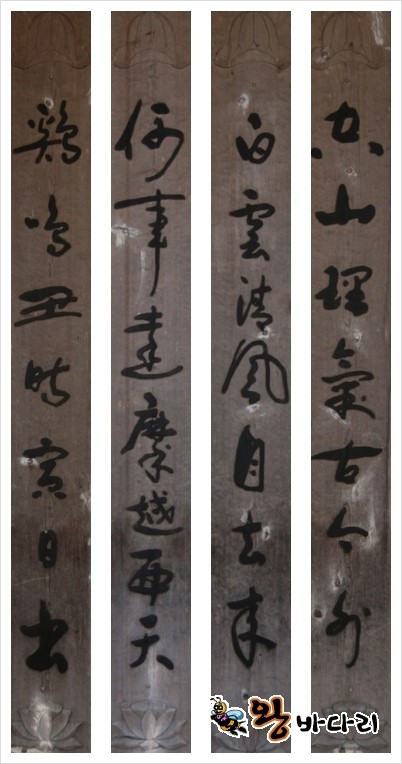 空山理氣古今外
白雲清風自去來
何事達摩越西天
鷄鳴丑時寅日出
왕바다리